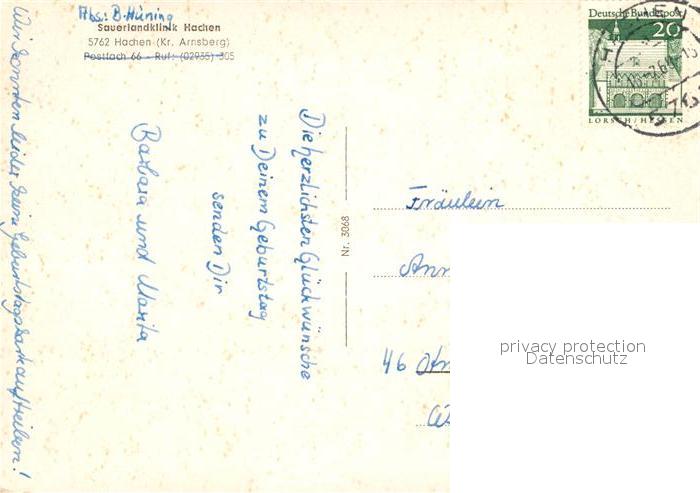 Abs.: B. Hüning
Sauerlandklinik Hachen
5762 Hachen (Kr. Arnsberg)
Postfach 66 - Ruf: (02935) 305
Die herzlichsten Glückwünsche
zu Deinem Geburtstag
senden Dir
Barbara und Marita
Wir konnten leider keine Geburtstagskarte auftreiben!
Nr. 3068
Deutsche Bundespost
20
LORSCH/HESSEN
Fräulein
46
privacy protection
Datenschutz